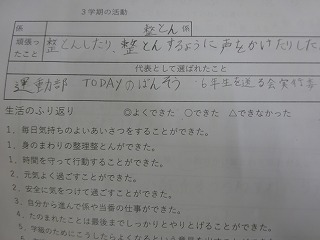 3学期の活動
係 整とん係
頑張ったこと 整とんしたり、整とんするように声をかけたりした。
代表として選ばれたこと
運動部 TODAYのばんそう 6年生を送る会実行委
生活のふり返り ◎よくできた ○できた △できなかった
1、毎日気持ちのよいあいさつをすることができた。
1、身のまわりの整理整とんができた。
1、時間を守って行動することができた。
2、元気よく過ごすことができた。
2、安全に気をつけて過ごすことができた。
3、自分から進んで係や当番の仕事ができた。
4、たのまれたことは最後までしっかりとやりとげることができた。
5、学級のためにこうしたらよくなると